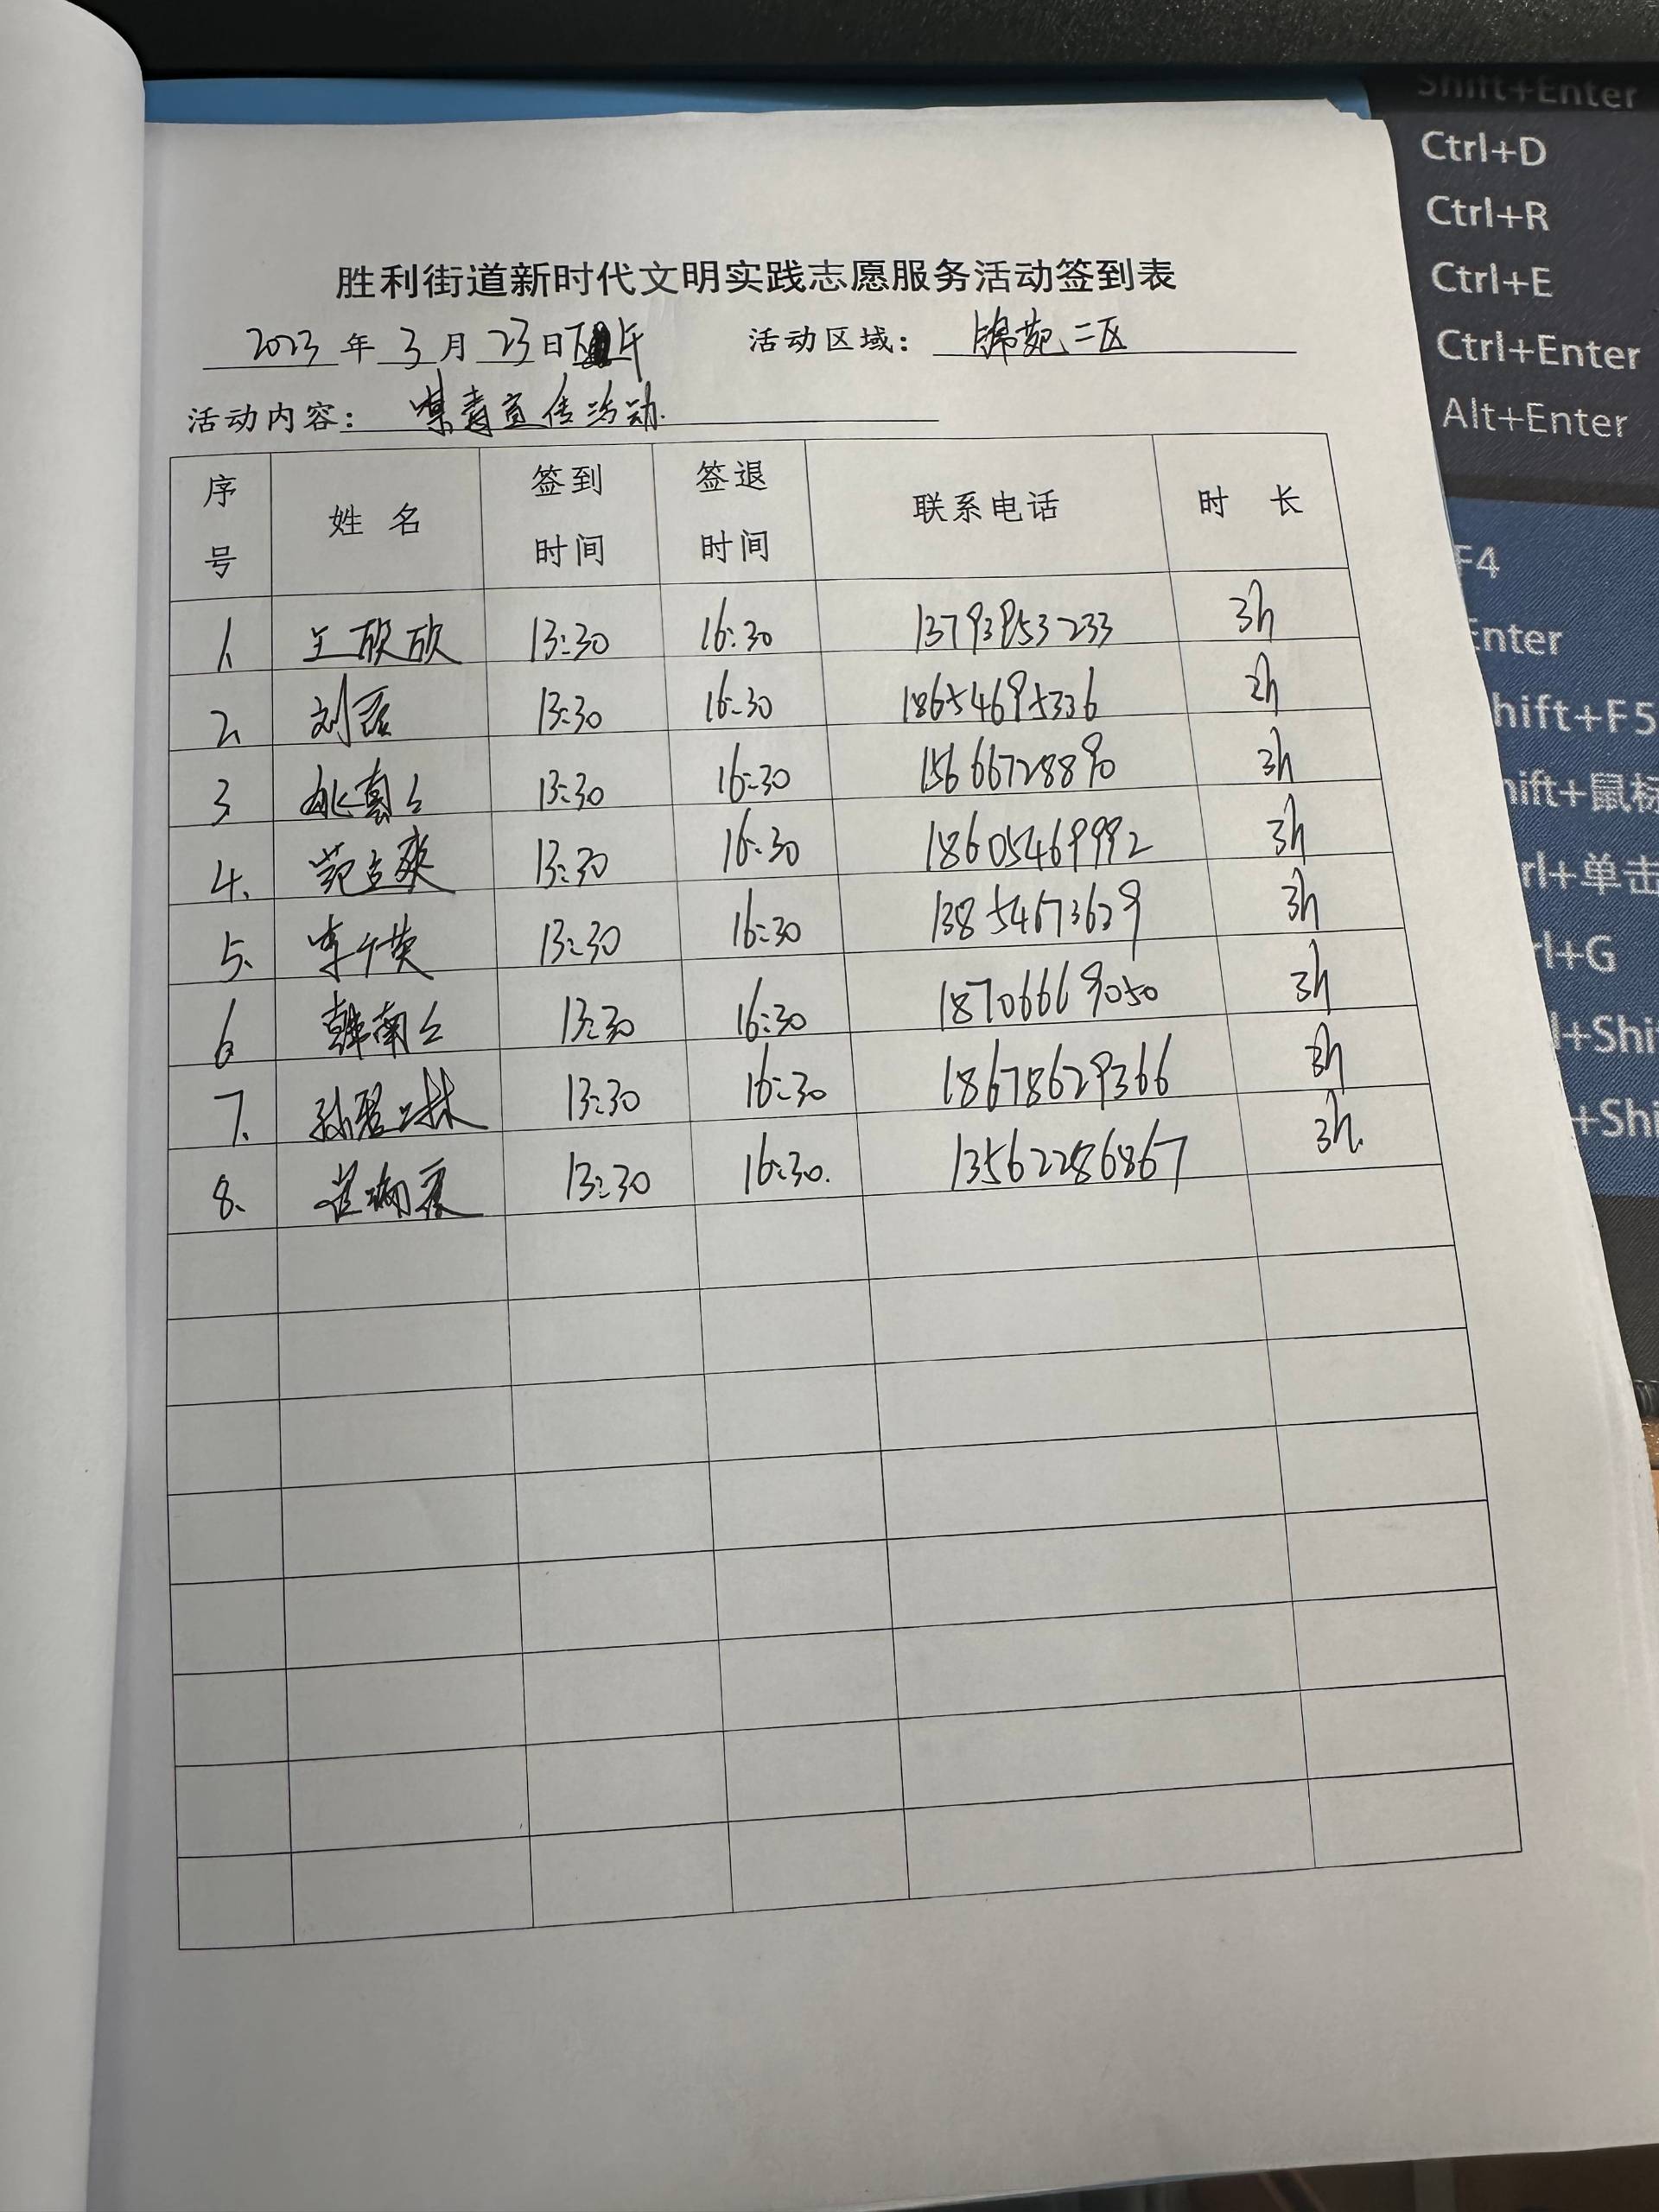 胜利街道新时代文明实践志愿服务活动签到表
2023 年 3 月 23 日下午 活动区域： 锦苑二区
活动内容： 宣传活动.
序号 姓名 签到时间 签退时间 联系电话 时长
1、 王欣欣 13:30 16:30 13793853233 3h
2、 刘 13:30 16:30 18654695336
3 13:30 16:30 15666728890 3h
4、 范 13:30 16:30 18605469992 3h
5、 李 13:30 16:30 13854673629 3h
6 韩南 13:30 16:30 18706669050 3h
7、 孙 13:30 16:30 18678629366 3h
8、 崔 13:30 16:30. 13562286867 3h.
Shift+Enter
Ctrl+D
Ctrl+R
Ctrl+E
Ctrl+Enter
Alt+Enter
F4
Enter
hift+F5
hift+鼠标
rl+单击
rl+G
l+Shi
+Shi